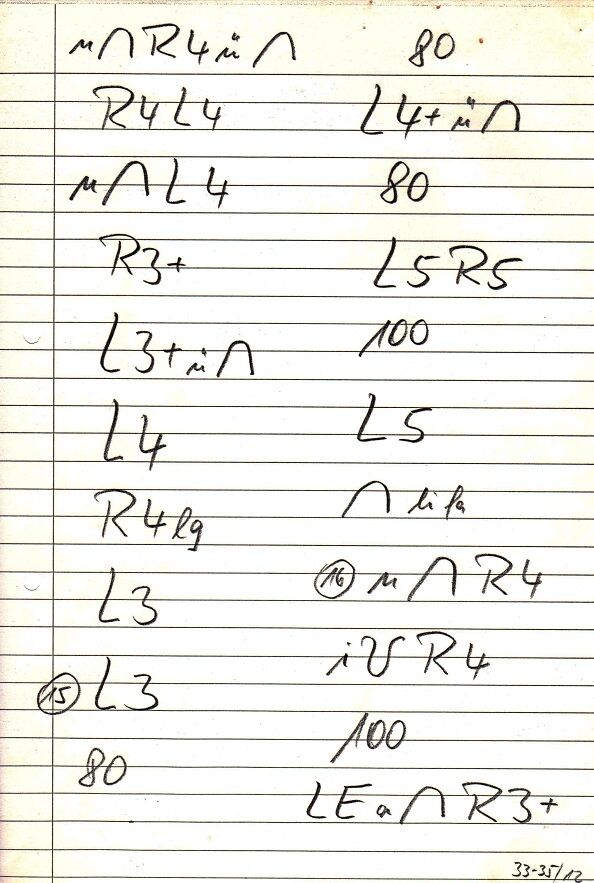 u∩R4ü∩
R4L4
u∩L4
R3+
L3+ü∩
L4
R4lg
L3
15 L3
80
80
L4+ü∩
80
L5R5
100
L5
∩ li fa
16 u∩R4
R4
100
LE a∩R3+
33-35/12